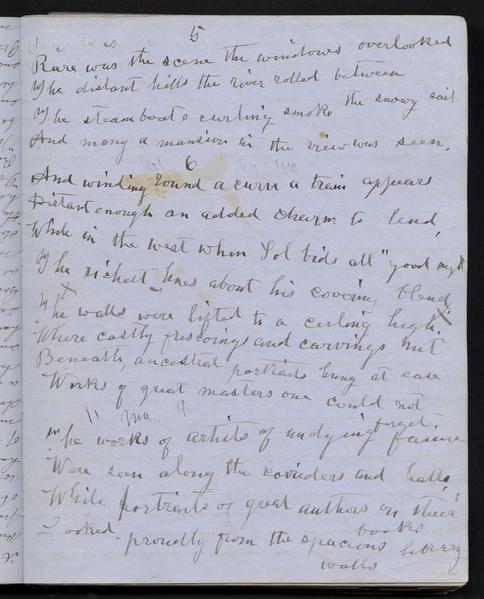 5
Rare was the scene the windows overlooked
The distant hills the river rolled between
The steamboats curling smoke the snowy sail
And many a mansion in the view was seen.
6
And winding round a curve a train appears
Distant enough an added charm to lend,
While in the west when Sol bids all "good night
The richest hues about his covering blend
The walls were lifted to a ceiling high.
Where costly frescoings and carvings met
Beneath, ancestral portraits hung at ease
Works of great masters one could not
forget
The works of artists of undying fame
Were seen along the coriders and halls,
While portraits of great authors on their
books
Looked proudly from the spacious library
walls